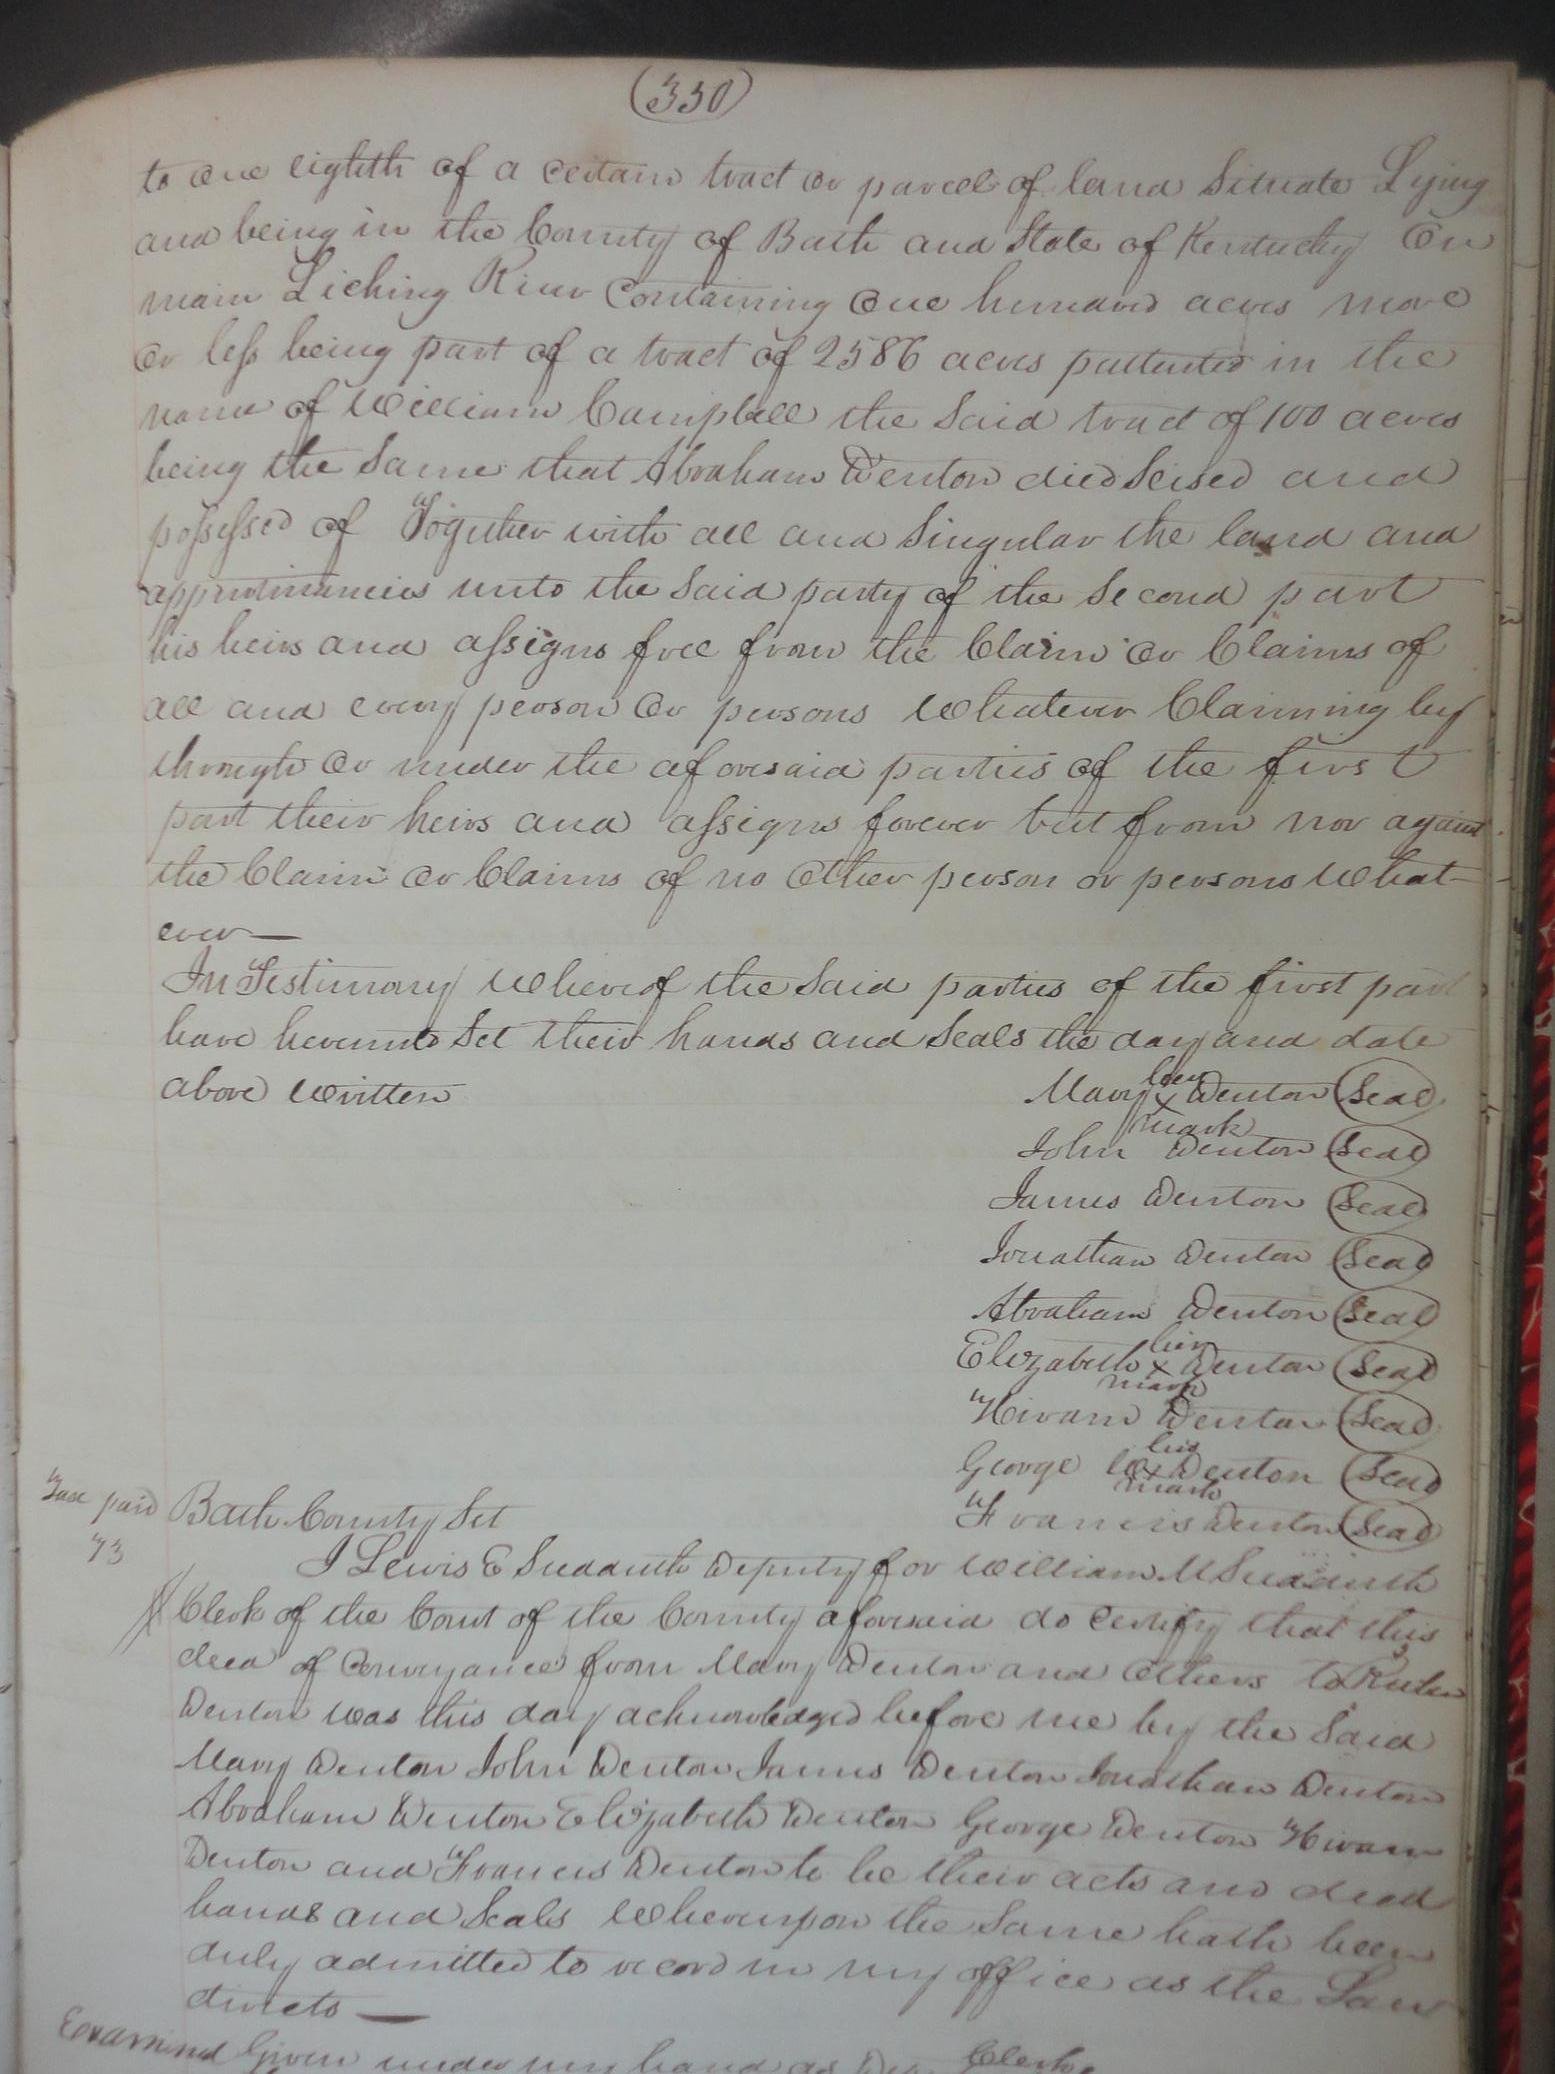 (330)
to one eighth of a certain tract or parcel of land Situate Lying
and being in the County of Bath and State of Kentucky On
main Licking River Containing One hundred acres more
Or less being part of a tract of 2586 acres pattented in the
name of William Campbell the Said tract of 100 acres
being the Same that Abraham Denton died Seised and
possessed of Together with all and Singular the land and
appurtinancies unto the Said party of the Second part
his heirs and assigns free from the Claim Or Claims of
all and every person Or persons Whatever Claiming by
through Or under the aforesaid parties of the first
part their heirs and assigns forever but from nor against
the Claim Or Claims of no Other person or persons What-
ever—
In Testimony Whereof the Said parties of the first part
have hereunto Set their hands and Seals the day and date
above Written
Mary her x mark Denton (Seal)
John Denton (Seal)
James Denton (Seal)
Jonathan Denton (Seal)
Abraham Denton (Seal)
Elizabeth her x mark Denton (Seal)
Hiram Denton (Seal)
George W his x mark Denton (Seal)
Francis Denton (Seal)
Tax paid
73
Bath County Sct
I Lewis E Sudduth Deputy for William M Sudduth
Clerk of the Court of the County aforesaid do Certify that this
deed of Conveyance from Mary Denton and Others to
Denton was this day acknowledged before me by the Said
Mary Denton John Denton James Denton Jonathan Denton
Abraham Denton Elizabeth Denton George Denton Hiram
Denton and Francis Denton to be their acts and deed
hands and Seals Whereupon the Same hath been
duly admitted to record in my office as the Law
directs—
Examined Given under my hand as Clerk